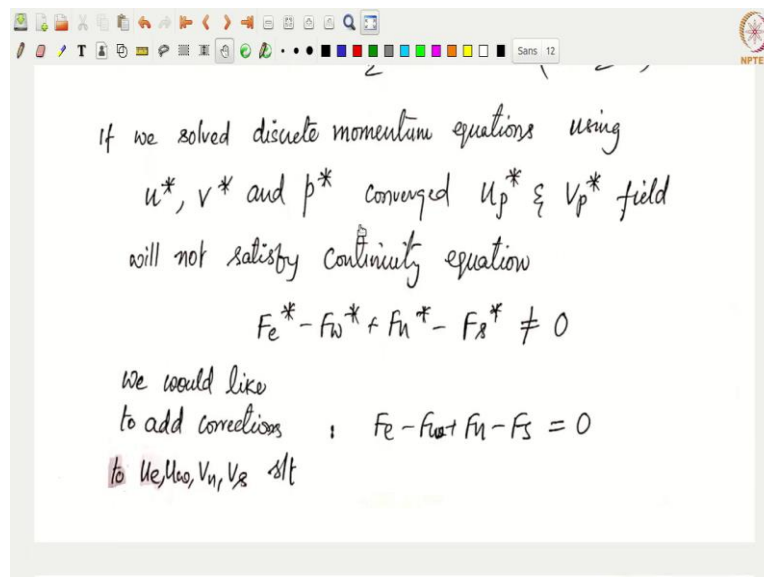 Sans 12
NPTE
2
2
If we solved discrete momentum equations using
u*, v* and p* converged Up* & Vp* field
will not satisfy continuity equation
Fe* - Fw* + Fn* - Fs* ≠ 0
We would like
to add corrections : Fe - Fw + Fn - Fs = 0
to Ue, Uw, Vn, Vs s/t